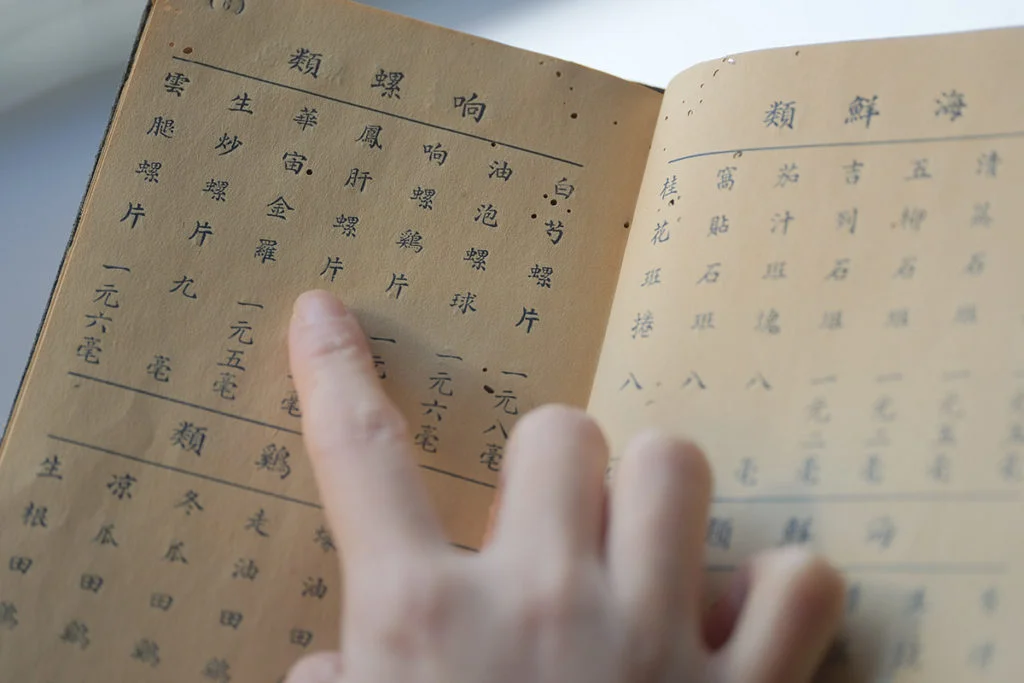 海鮮類
清蒸石班 一元五毫
五柳石班 一元二毫
吉列石班 一元二毫
茄汁班塊 八毫
窩貼石班 八
桂花班捲 八
海鮮類
响螺類
白芍螺片 一元八毫
油泡螺球 一元六毫
响螺鷄片 一元
鳳肝螺片 毫
華宙金羅 一元五毫
生炒螺片 九毫
雲腿螺片 一元六毫
鷄類
油田
走油田鷄
冬瓜田鷄
凉瓜田鷄
生根田鷄